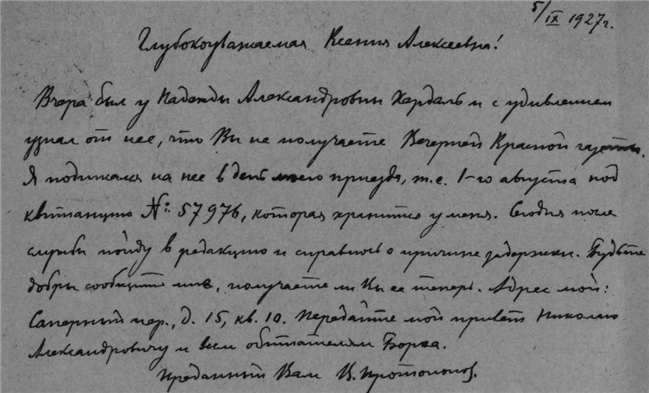 5/IX 1927г.
Глубокоуважаемая Ксения Алексеевна!
Вчера был у Надежды Александровны и с удивлением
узнал от нее, что Вы не получаете Вечерней Красной газеты.
Я подписался на нее в день моего приезда, т.е. 1-го августа под
квитанцию №: 57976, которая хранится у меня. Сегодня после
службы пойду в редакцию и справлюсь о причине задержки. Будьте
добры сообщить мне, получаете ли Вы ее теперь. Адрес мой:
Саперный пер., д. 15, кв. 10. Передайте мой привет Николаю
Александровичу и всем обитателям Борка.
Преданный Вам В. Протопопов.